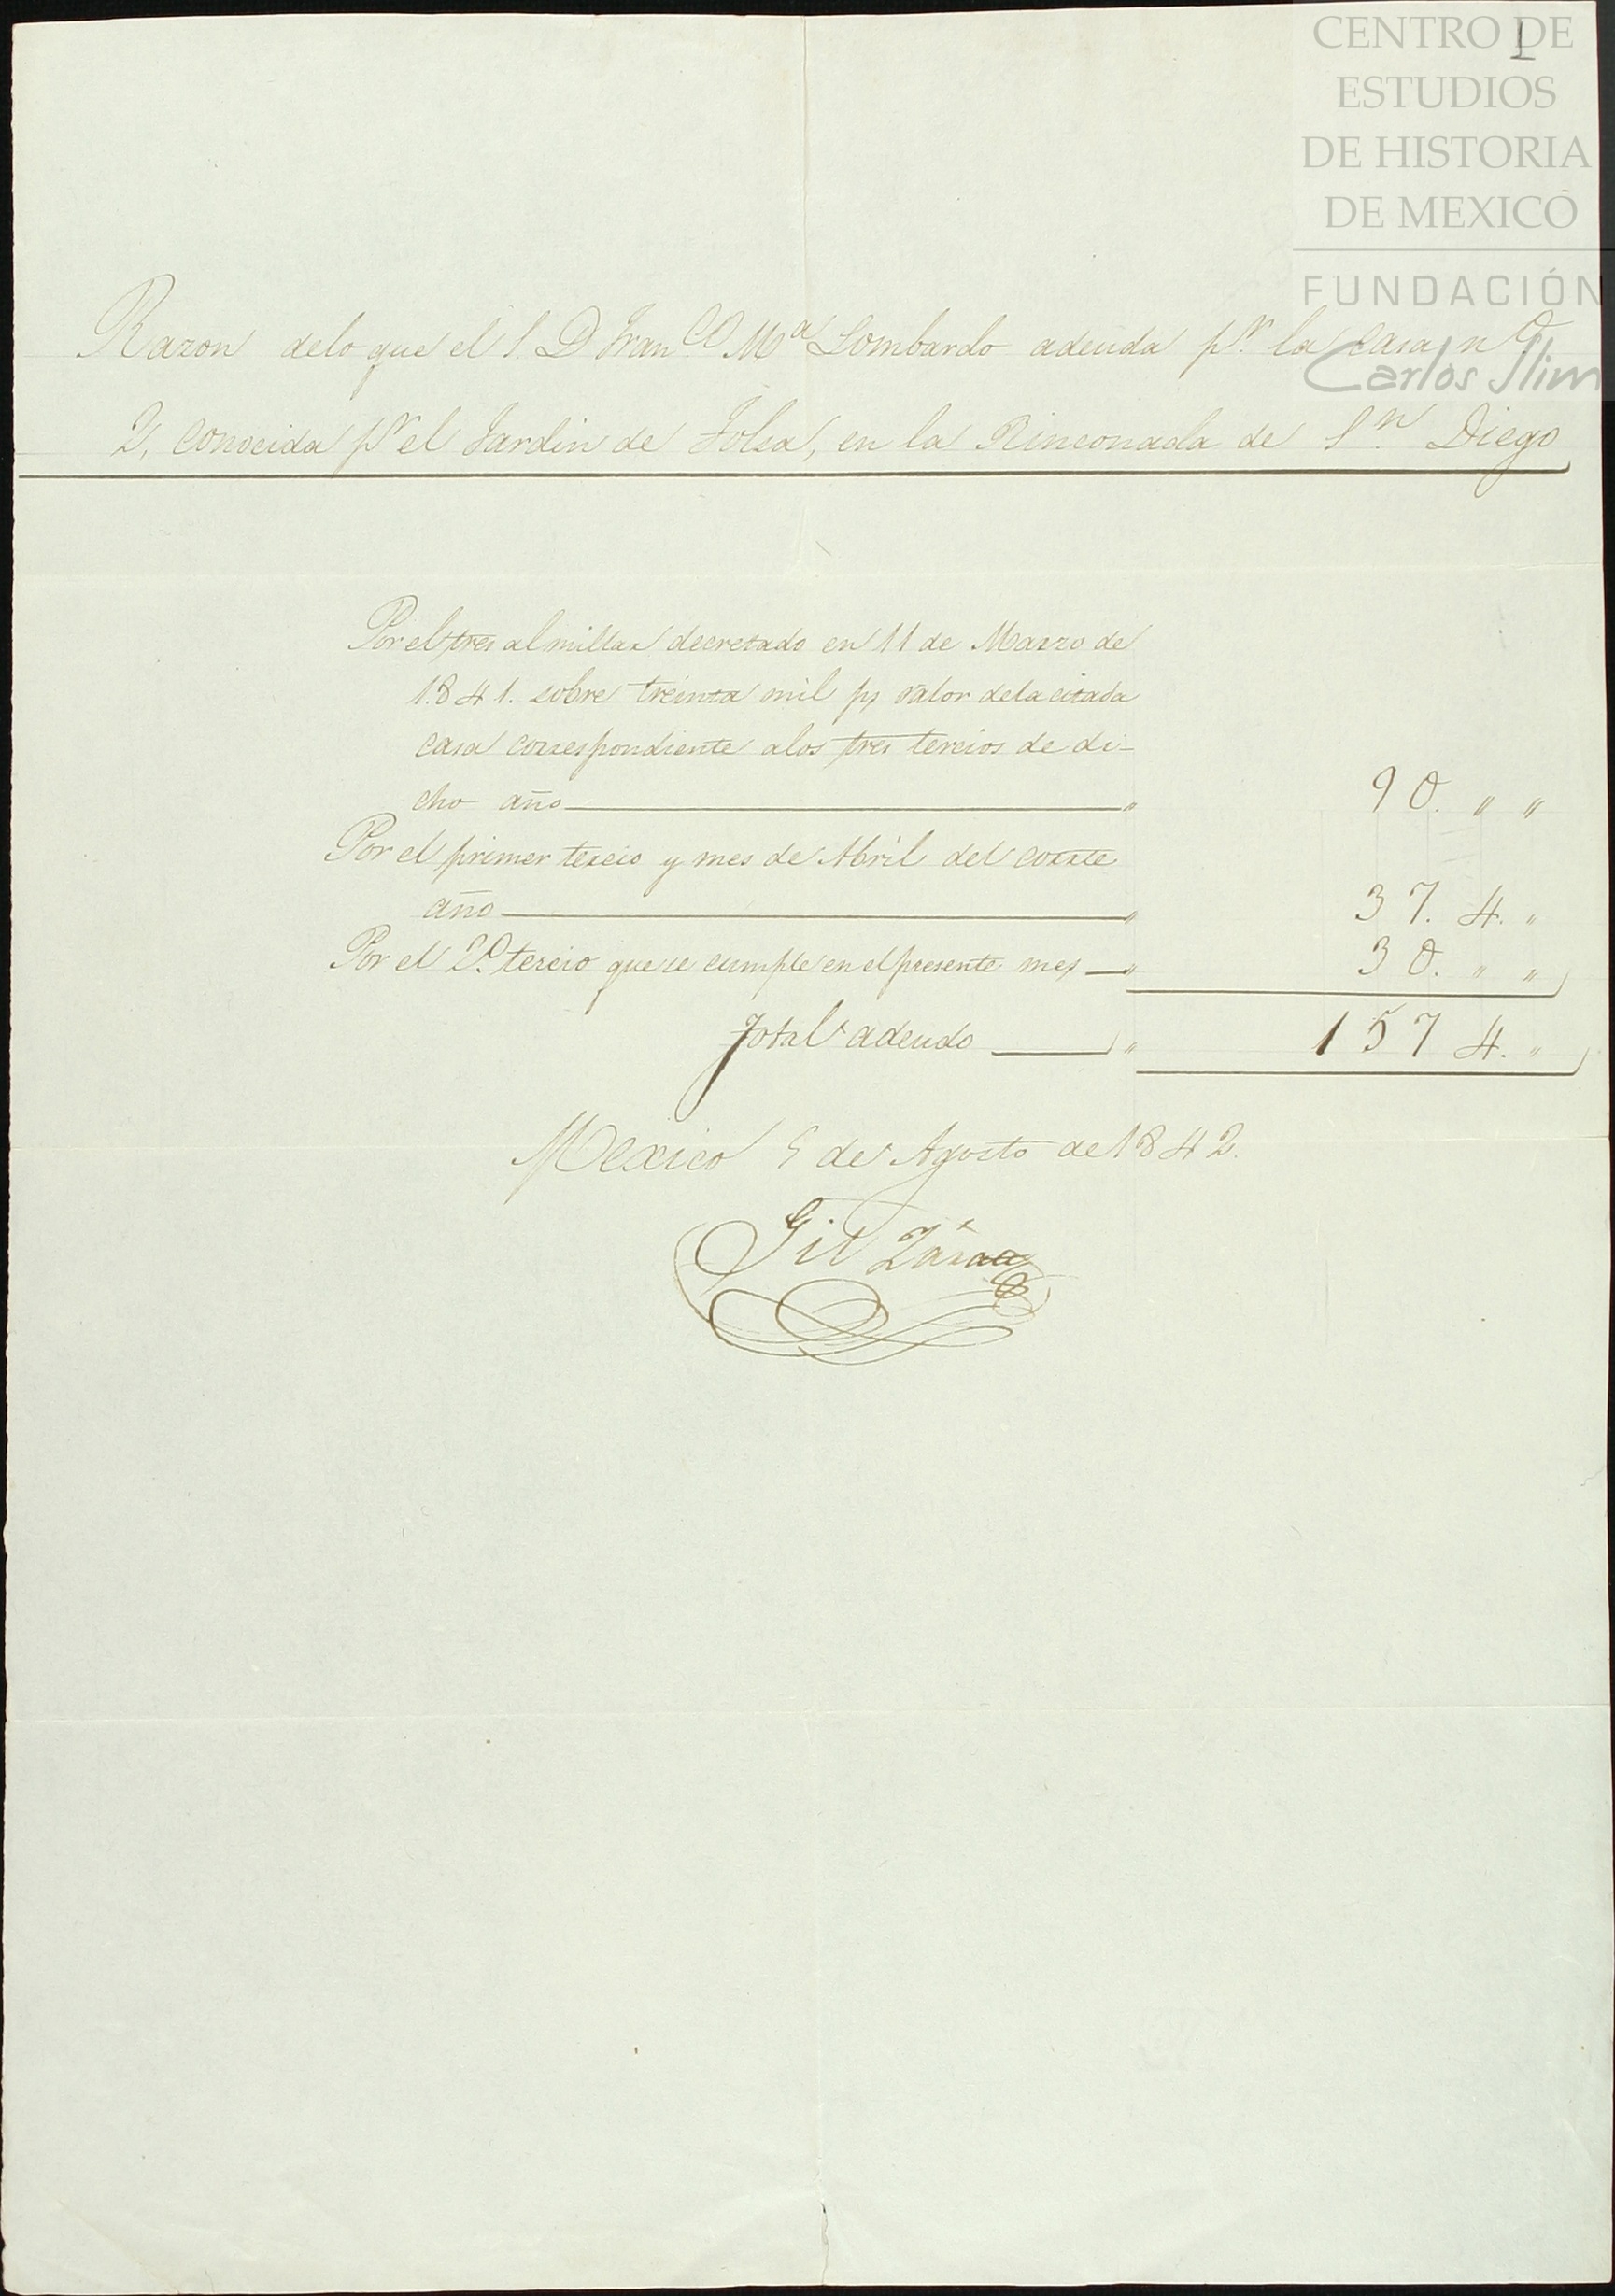 CENTRO DE
ESTUDIOS
DE HISTORIA
DE MEXICO
FUNDACIÓN
Carlos Slim
1
Razon delo que el S. D Fran.co Ma Lombardo adeuda pr. la casa no
2, conocida pr el Jardin de Tolsa, en la Rinconada de Sn. Diego
Por el tres al millar decretado en 11 de Marzo de
1841. sobre treinta mil ps valor dela citada
casa correspondiente alos tres tercios de di-
cho año " 90. " "
Por el primer tercio y mes de Abril del corrte
año " 37. 4. "
Por el 2o. tercio que se cumple en el presente mes " 30. " "
Total adeudo " 157 4. "
Mexico 5 de Agosto de 1842.
Gil